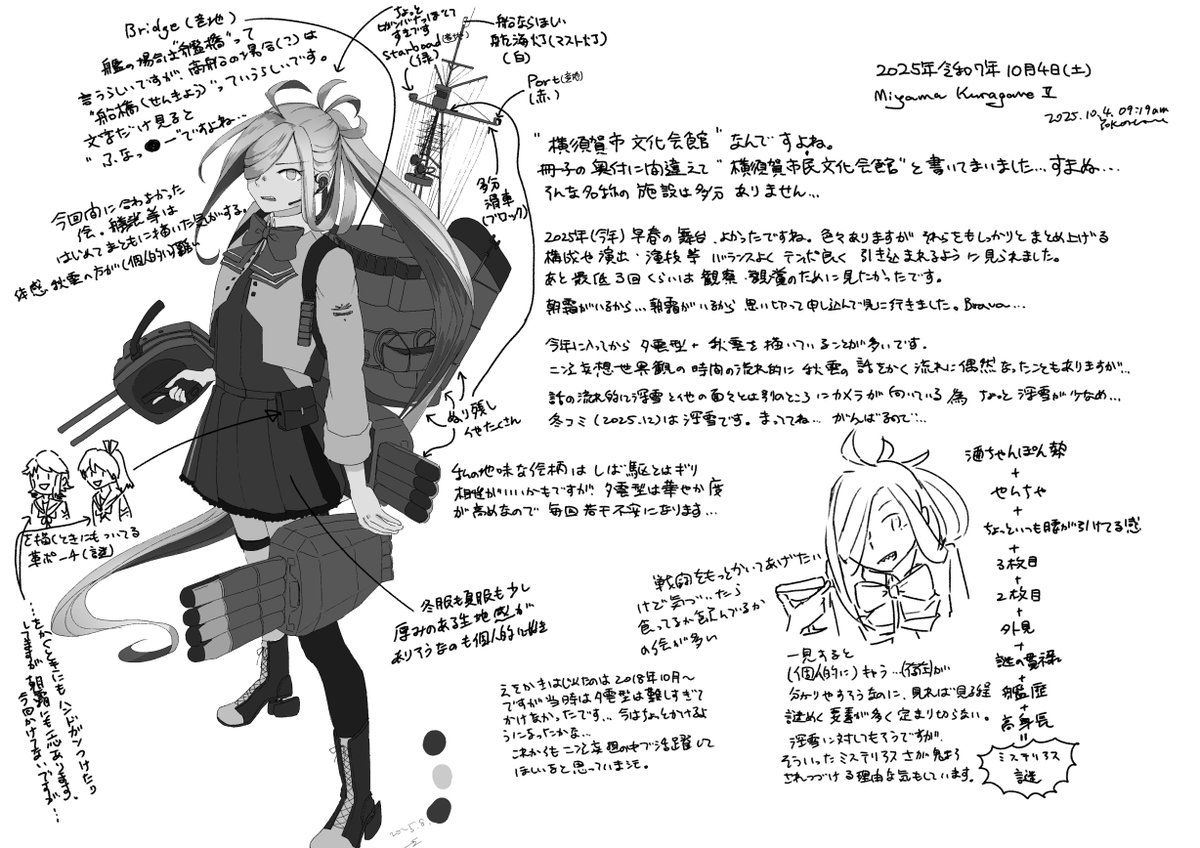 Bridge (基地)
艦の場合は"艦橋"って
言うらしいですが、商船の場合(?)は
"船橋(せんきょう)"っていうらしいです。
文字だけ見ると
"ふなっ●ー"ですよね…
ちょっと
すきです
Starboard
(緑)
船ならほしい
航海灯(マスト灯)
(白)
Port
(赤)
多分
滑車
(ブロック)
2025年令和7年 10月4日(土)
Miyama Kuragane II
2025.10.4. 09:19am
"横須賀市文化会館"なんですよね。
冊子の奥付に間違えて"横須賀市民文化会館"と書いてまいました…すまぬ…
そんな名称の施設は多分ありません…
2025年(今年)早春の舞台、よかったですね。色々ありますがそれらをもしっかりとまとめ上げる
構成や演出・演技等 バランスよく テンポ良く 引き込まれるように見られました。
あと最低3回くらいは観察・観覧のために見たかったです。
朝霜がいるから…朝霜がいるから 思い切って申し込んで見に行きました。Bravo…
今年に入ってから 夕雲型+秋雲を描いていることが多いです。
二次妄想世界観の時間の流れ的に 秋雲の話をかく流れに偶然なったこともありますが…
話の流れ的に浮雲と他の面々とは別のところにカメラが向いている為 ちょっと浮雲が少なめ…
冬コミ(2025.12)は浮雲です。まっててね… がんばるので…
今回間に合わなかった
絵。艤装等は
はじめてまともに描いた気がする。
体感 秋雲の方が(個人的に)難い
ぬり残し
他たくさん
私の地味な絵柄は しば駆とはギリ
相性がいいかもですが、夕雲型は華やか度
が高めなので 毎回若干不安になります…
を描くときにもついてる
革ポーチ(謎)
…をかくときにもハンドガンつけたり
してますが 朝霜にも一応あります。
今回かけてないですが…
冬服も夏服も少し
厚みのある生地感が
ありそうなのも個人的に好き
戦闘をもっとかいてあげたい
けど気づいたら
食ってるか飲んでるか
の絵が多い
えをかきはじめたのは2018年10月〜
ですが当時は夕雲型は難しすぎて
かけなかったです… 今はちょっとかけるよ
うになったかな…
これからも二次妄想の中で活躍して
ほしいなと思っています。
2025.8.
一見すると
(個人的に)キャラ…(存在)が
分かりやすそうなのに、見れば見る程
謎めく要素が多く定まり切らない。
浮雲に対してもそうですが、
そういったミステリアスさが魅力
されつづける理由な気もしています。
酒ちゃんぽん勢
+
せんちゃ
+
ちょっといつも腰が引けてる感
+
3枚目
+
2枚目
+
外見
+
謎の貫禄
+
艦歴
+
高身長
=
ミステリアス
謎